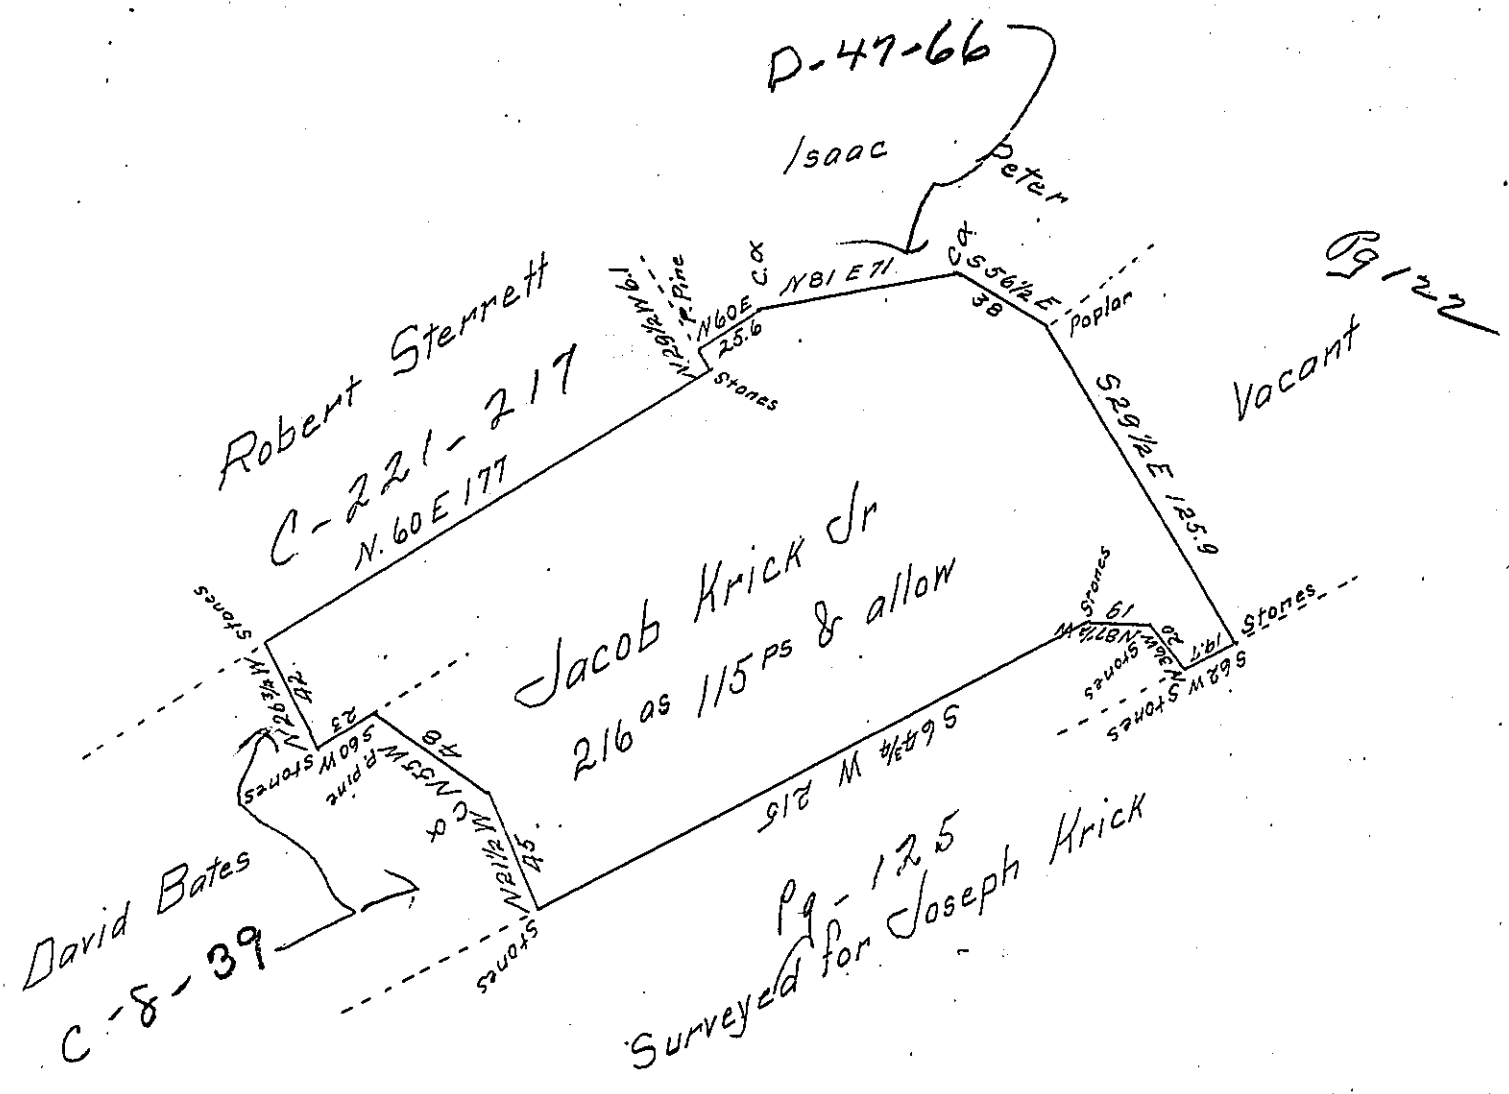 D-47-66
Isaac Peter
Pg 122
Robert Sterrett
C-221-217
N. 60 E 177
N. 29½ W 6.1
P. Pine
Stones
N 60 E
25.6
C.O.
N 81 E 71.
C.O.
S 56½ E
38
Poplar
Vacant
S 29½ E 125.9
Stones
S 62 W
19.7
Stones
N 36 W
20
Stones
N 87½ W
19
Stones
S 64¾ W 215
Jacob Krick Jr
216 as 115 ps & allow
Stones
N. 26¾ W
42.
Stones
S 60 W
23
P. pine
N 55 W
48
C O
N 21½ W
45.
Stones
David Bates
C-8-39
Pg-125
Surveyed for Joseph Krick